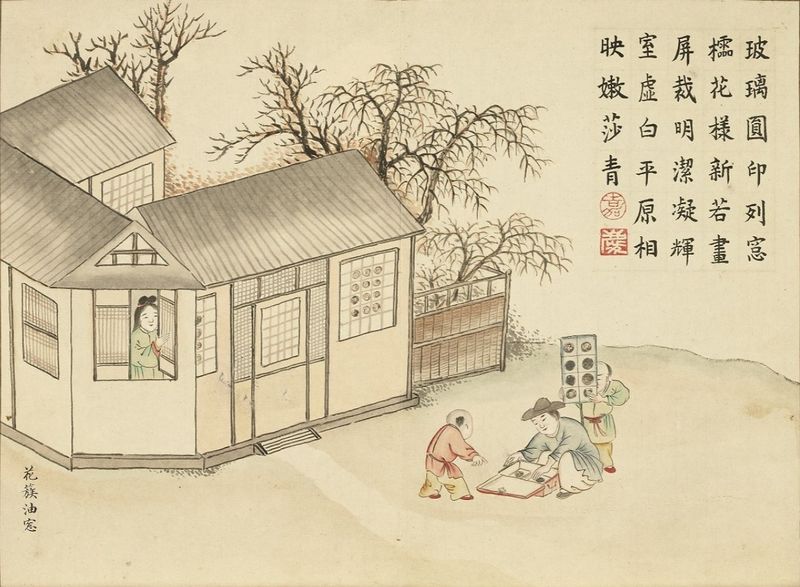 玻璃圓印列窓
櫺花樣新若畫
屏裁明潔凝輝
室虛白平原相
映嫩莎青
嘉
花簇油窓